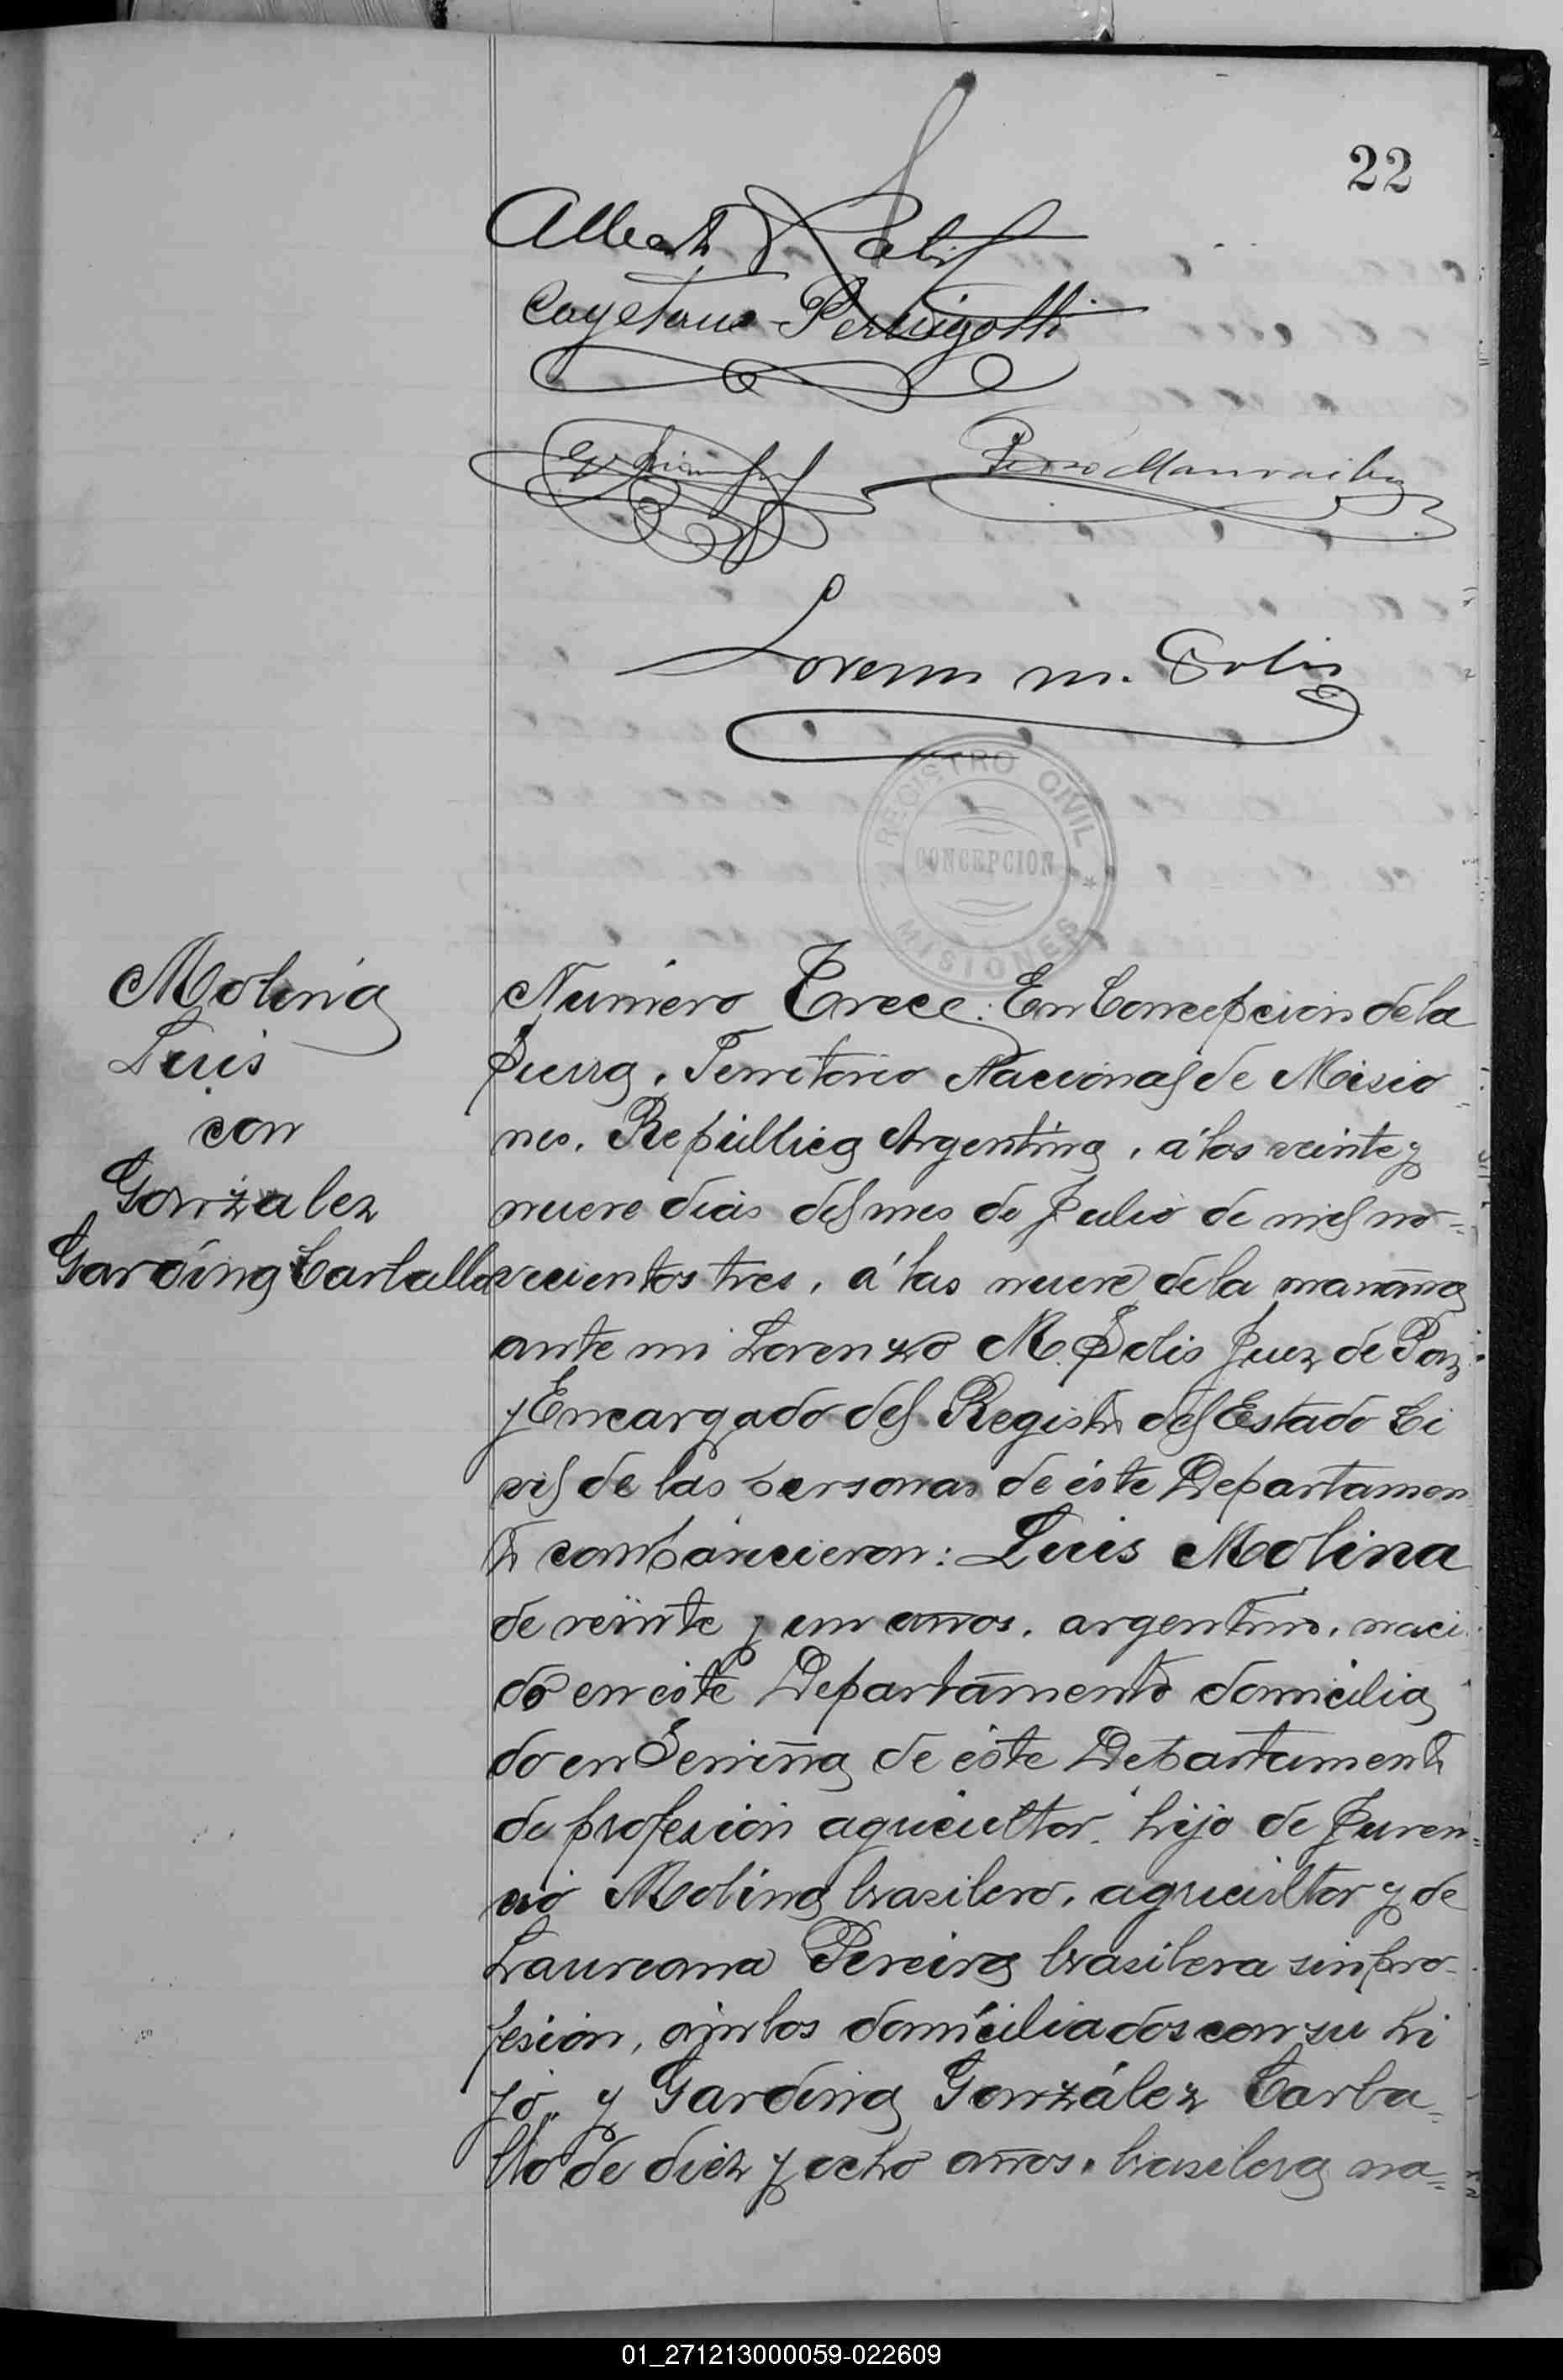 22
Cayetano Perugotti
Lorenzo M. Solis
REGISTRO CIVIL
CONCEPCION
MISIONES
Molina
Luis
con
Gonzalez
Gardina Carballo
Número Trece: En Concepcion de la
Sierra, Territorio Nacional de Misio
nes, República Argentina, á los veinte y
nueve dias del mes de Julio de mil no=
vecientos tres, á las nueve de la mañana
ante mi Lorenzo M. Solis Juez de Paz
y Encargado del Registro del Estado Ci
vil de las personas de éste Departamen
to comparecieron: Luis Molina
de veinte y un años, argentino, naci
do en este Departamento domicilia
do en de éste Departamento
de profesion agricultor, hijo de Juven=
cio Molina brasilero, agricultor y de
Laureana Pereira brasilera sin pro-
fesion, ambos domiciliados con su hi
jo, y Gardina González Carba=
llo de diez y ocho años, brasilera na=
01_271213000059-022609